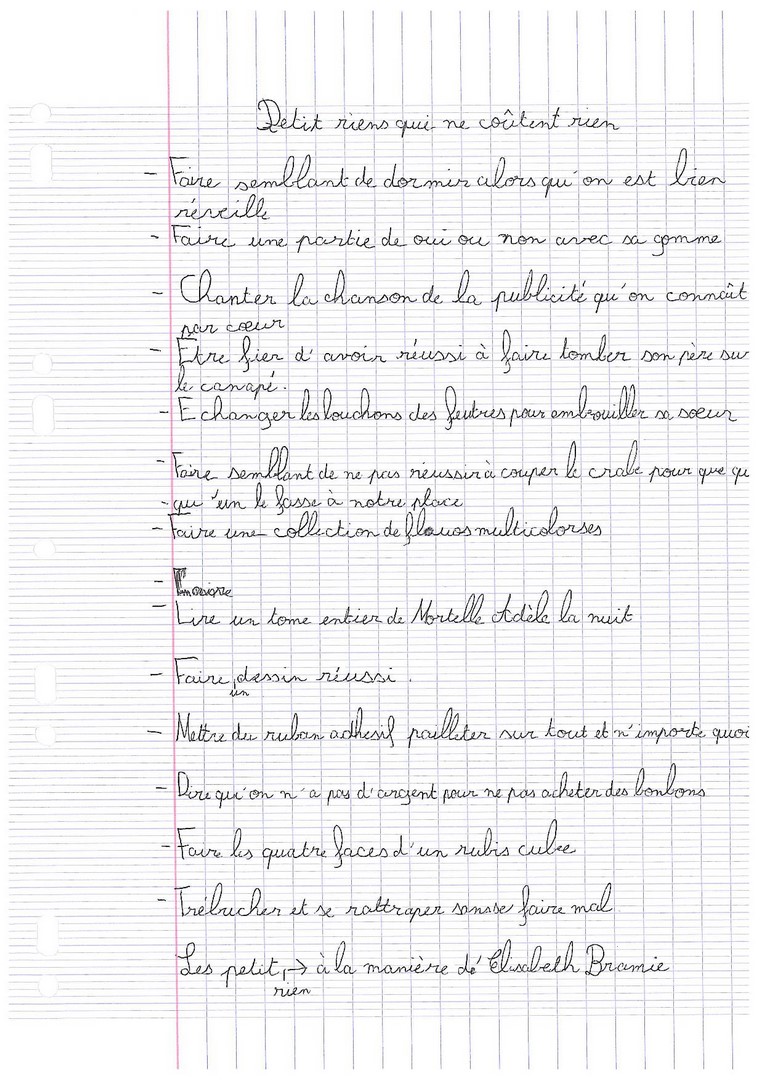 Petit riens qui ne coûtent rien
- Faire semblant de dormir alors qu'on est bien
réveille
- Faire une partie de oui ou non avec sa gomme
- Chanter la chanson de la publicité qu'on connaît
par cœur
- Etre fier d'avoir réussi à faire tomber son père su
le canapé.
- Echanger les bouchons des feutres pour embrouiller sa sœur
- Faire semblant de ne pas réussir à couper le crabe pour que qu
- qu'un le fasse à notre place
- Faire une collection de multicolorses
-
- Lire un tome entier de Mortelle Adèle la nuit
- Faire dessin réussi.
un
- Mettre du ruban adhésif pailleter sur tout et n'importe quoi
- Dire qu'on n'a pas d'argent pour ne pas acheter des bonbons
- Faire les quatre faces d'un rubis cube
- Trébucher et se rattraper sans se faire mal
Les petit, → à la manière dé Elisabeth Bramie
rien